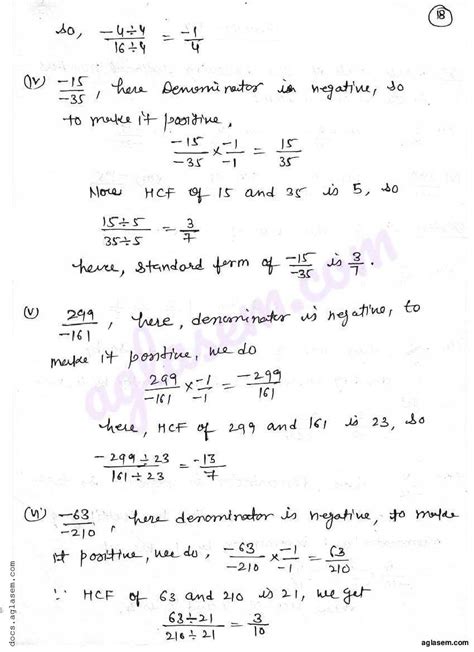 18
so, -4÷4 / 16÷4 = -1/4
(iv) -15/-35, here Denominator is negative, so
to make it positive,
-15/-35 × -1/-1 = 15/35
Now HCF of 15 and 35 is 5, so
15÷5 / 35÷5 = 3/7
hence, standard form of -15/-35 is 3/7.
(v) 299/-161, here, denominator is negative, to
make it positive, we do
299/-161 × -1/-1 = -299/161
here, HCF of 299 and 161 is 23, so
-299÷23 / 161÷23 = -13/7
(vi) -63/-210, here denominator is negative, to make
it positive, we do, -63/-210 × -1/-1 = 63/210
∵ HCF of 63 and 210 is 21, we get
63÷21 / 210÷21 = 3/10
aglasem.com
docs.aglasem.com
aglasem.com